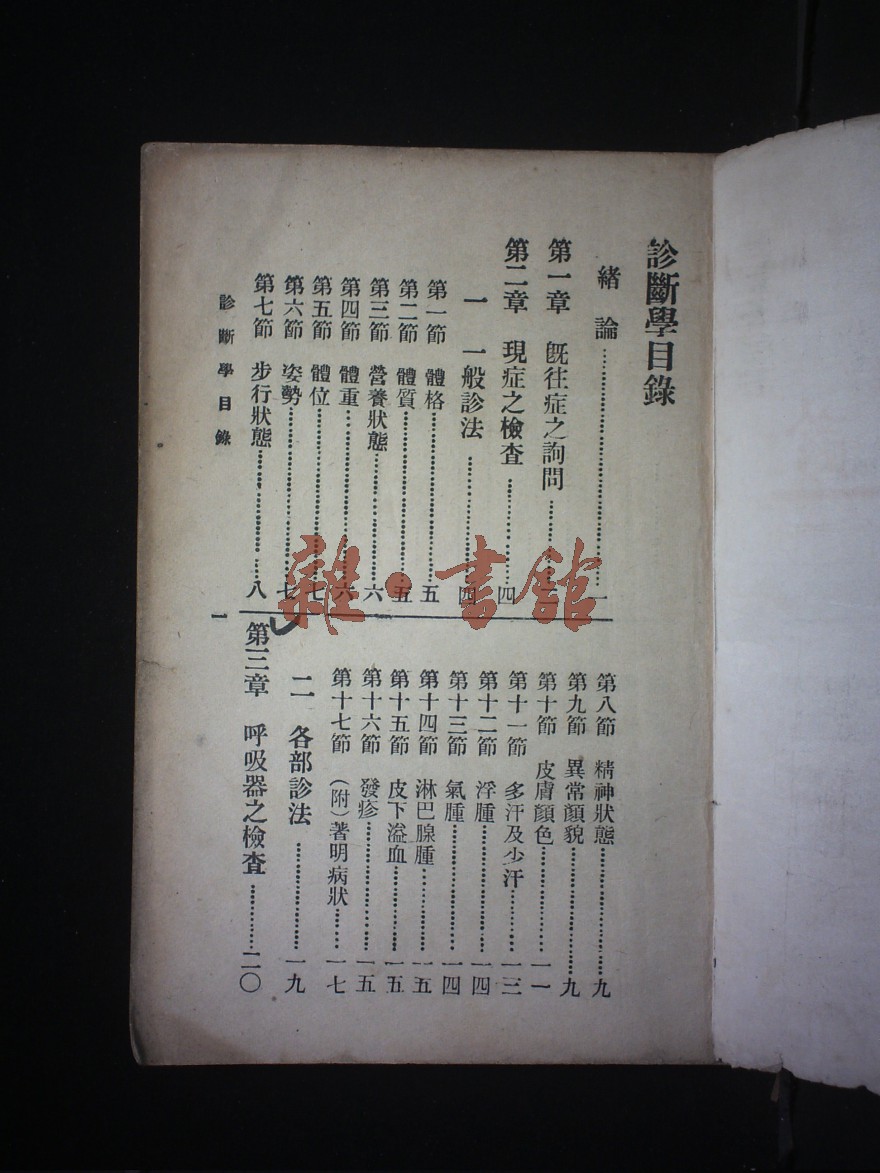 診斷學目錄
緒論…………一
第一章 既往症之詢問…………
第二章 現症之檢查…………四
一 一般診法…………四
第一節 體格…………五
第二節 體質…………五
第三節 營養狀態…………六
第四節 體重…………六
第五節 體位…………七
第六節 姿勢…………七
第七節 步行狀態…………八
第八節 精神狀態…………九
第九節 異常顏貌…………九
第十節 皮膚顏色…………一一
第十一節 多汗及少汗…………一三
第十二節 浮腫…………一四
第十三節 氣腫…………一四
第十四節 淋巴腺腫…………一五
第十五節 皮下溢血…………一五
第十六節 發疹…………一五
第十七節 (附)著明病狀…………一七
二 各部診法…………一九
第三章 呼吸器之檢查…………二〇
診斷學目錄
一
雜·書館